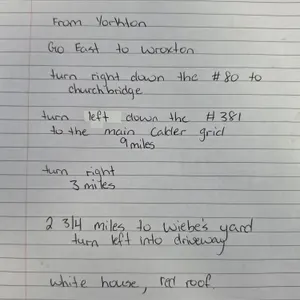 From Yorkton
Go East to Wroxton
turn right down the #80 to
churchbridge
turn left down the #381
to the main Calder grid
9 miles
turn right
3 miles
2 3/4 miles to Wiebe's yard
turn left into driveway
White house, red roof.